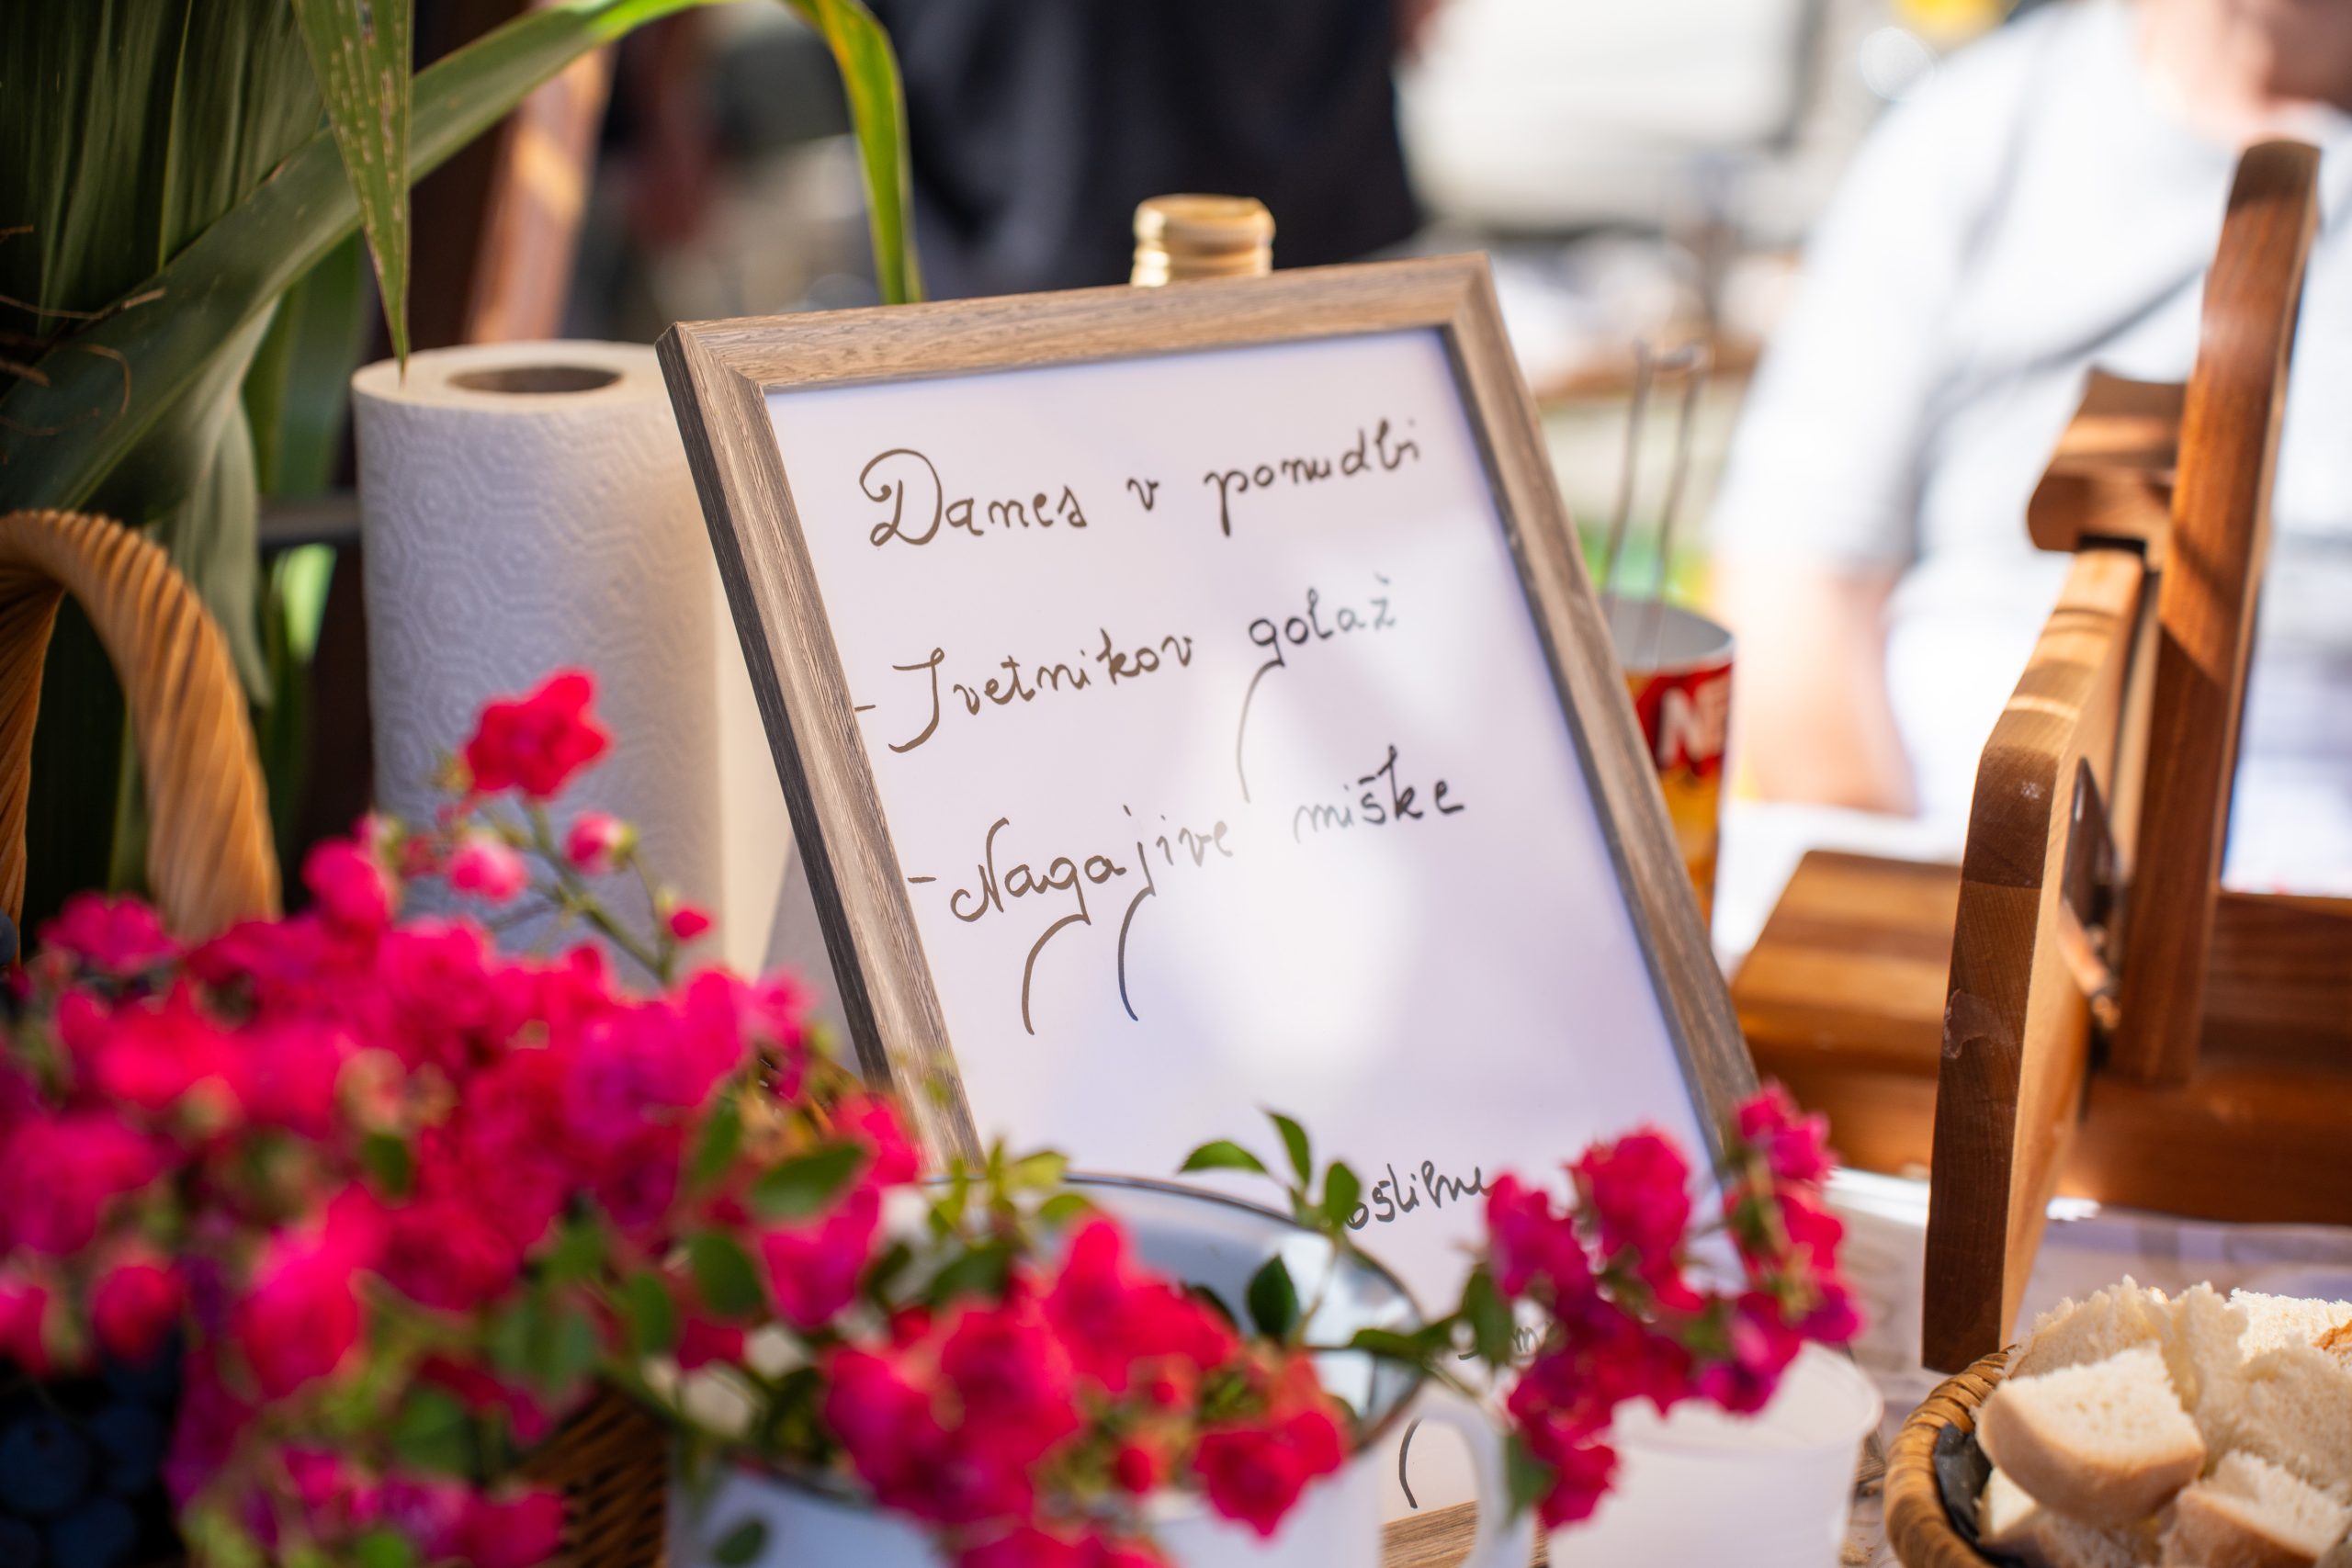 Danes v ponudbi
- Svetnikov golaž
- Nagajive miške